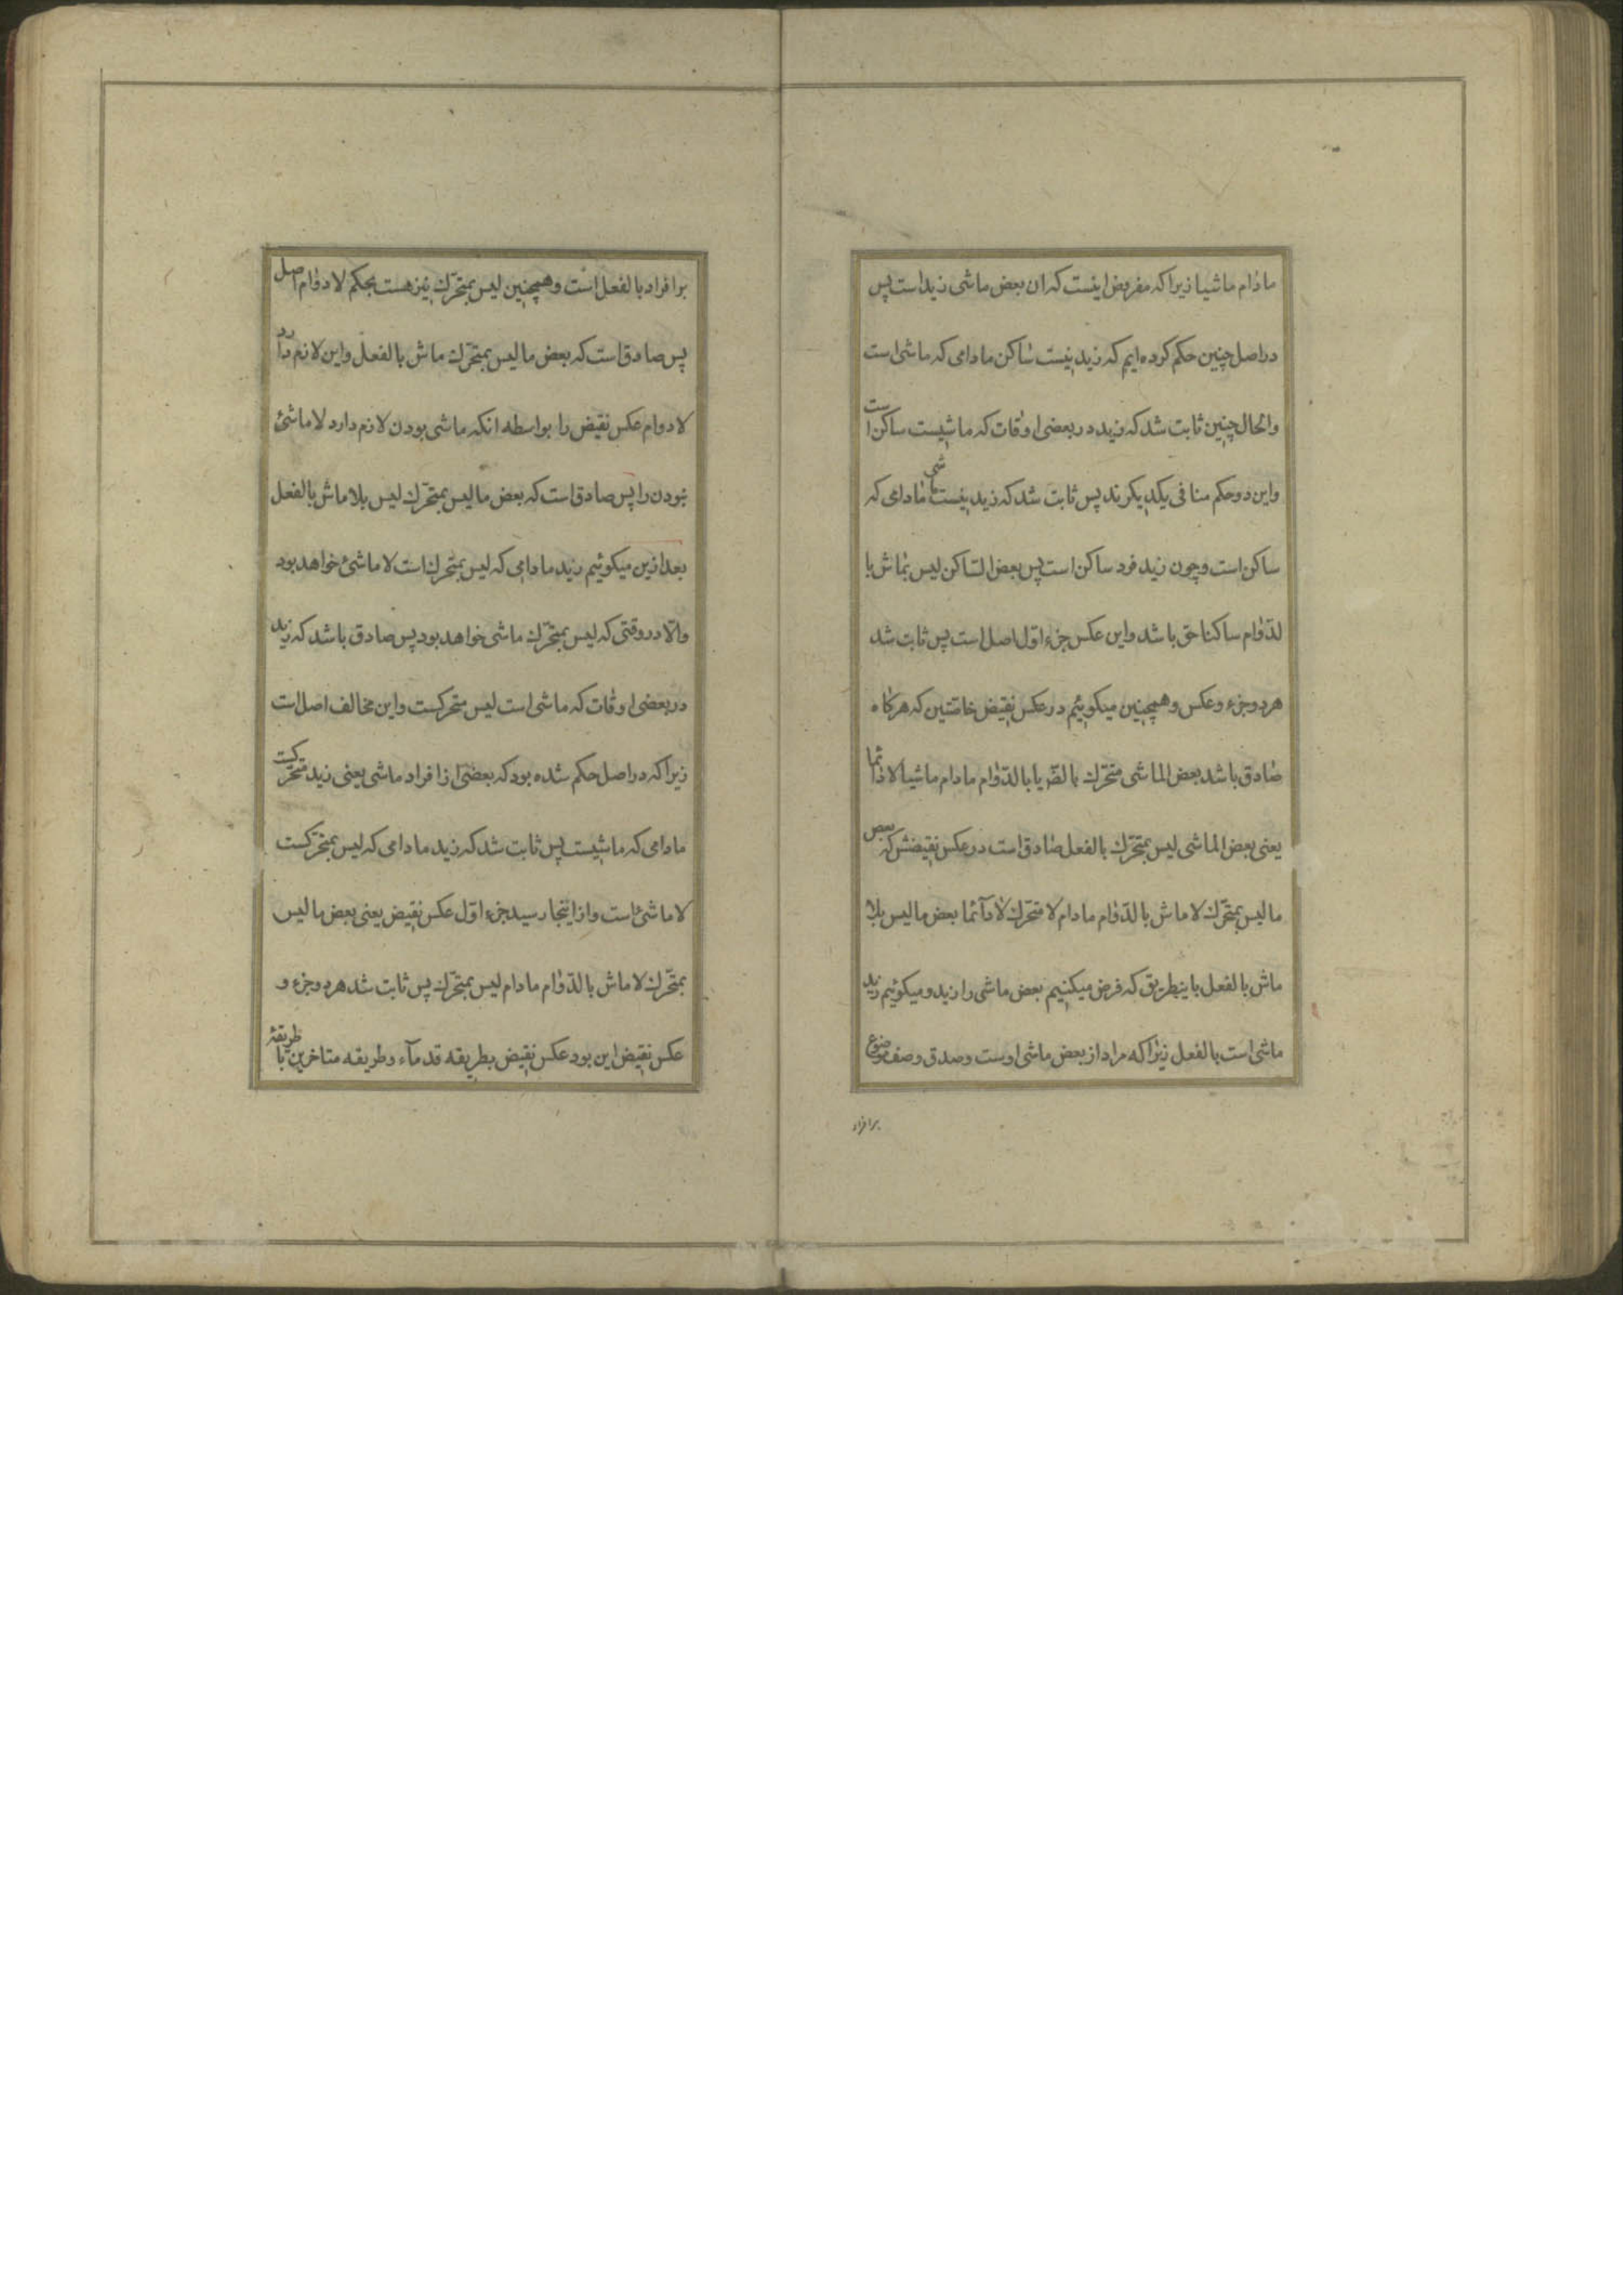 مادام ماشیا زیرا که مفروض اینست که ان بعض ماشی زید است پس
در اصل چنین حکم کرده ایم که زید نیست ساکن مادامی که ماشی است
والحال چنین ثابت شد که زید در بعضی اوقات که ماشیست ساکن است
و این دو حکم منافی یکدیکرند پس ثابت شد که زید نیست ماشی مادامی که
ساکن است و چون زید فرد ساکن است پس بعض الساکن لیس بماش با
لدّوام ساکنا حق باشد و این عکس جزء اوّل اصل است پس ثابت شد
هر دو جزء و عکس و همچنین میکوییم در عکس نقیض خاصّتین که هرکاه
صادق باشد بعض الماشی متحرّك بالضّر یا بالدّوام مادام ماشیا لا دائما
یعنی بعض الماشی لیس بمتحرّك بالفعل صادق است در عکس نقیضش که بعض
ما لیس بمتحرّك لا ماش بالدّوام مادام لا متحرّك لا دآئما بعض ما لیس بلا
ماش بالفعل باینطریق که فرض میکنیم بعض ماشی را زید و میکوئیم زید
ماشی است بالفعل زیرا که مراد از بعض ماشی اوست و صدق وصف موضوع
برافراد
برافراد بالفعل است و همچنین لیس بمتحرّك نیز هست بحکم لا دوام اصل
پس صادق است که بعض ما لیس بمتحرّك ماش بالفعل و این لازم دارد
لا دوام عکس نقیض را بواسطه انکه ماشی بودن لازم دارد لا ماشئ
نبودن را پس صادق است که بعض ما لیس بمتحرّك لیس بلا ماش بالفعل
بعد ازین میکوئیم زید مادامی که لیس بمتحرك است لا ماشئ خواهد بود
والّا در وقتی که لیس بمتحرّك ماشی خواهد بود پس صادق باشد که زید
در بعضی اوقات که ماشی است لیس متحرکست و این مخالف اصل است
زیرا که در اصل حکم شده بود که بعضی از افراد ماشی یعنی زید متحرّکست
مادامی که ماشیست پس ثابت شد که زید مادامی که لیس بمتحرّکست
لا ماشئ است و از اینجا رسید جزء اوّل عکس نقیض یعنی بعض ما لیس
بمتحّرك لا ماش بالدّوام مادام لیس بمتحرّك پس ثابت شد هر دو جزء و
عکس نقیض این بود عکس نقیض بطریقه قدمآء و طریقه متاخرین با طریقهٔ